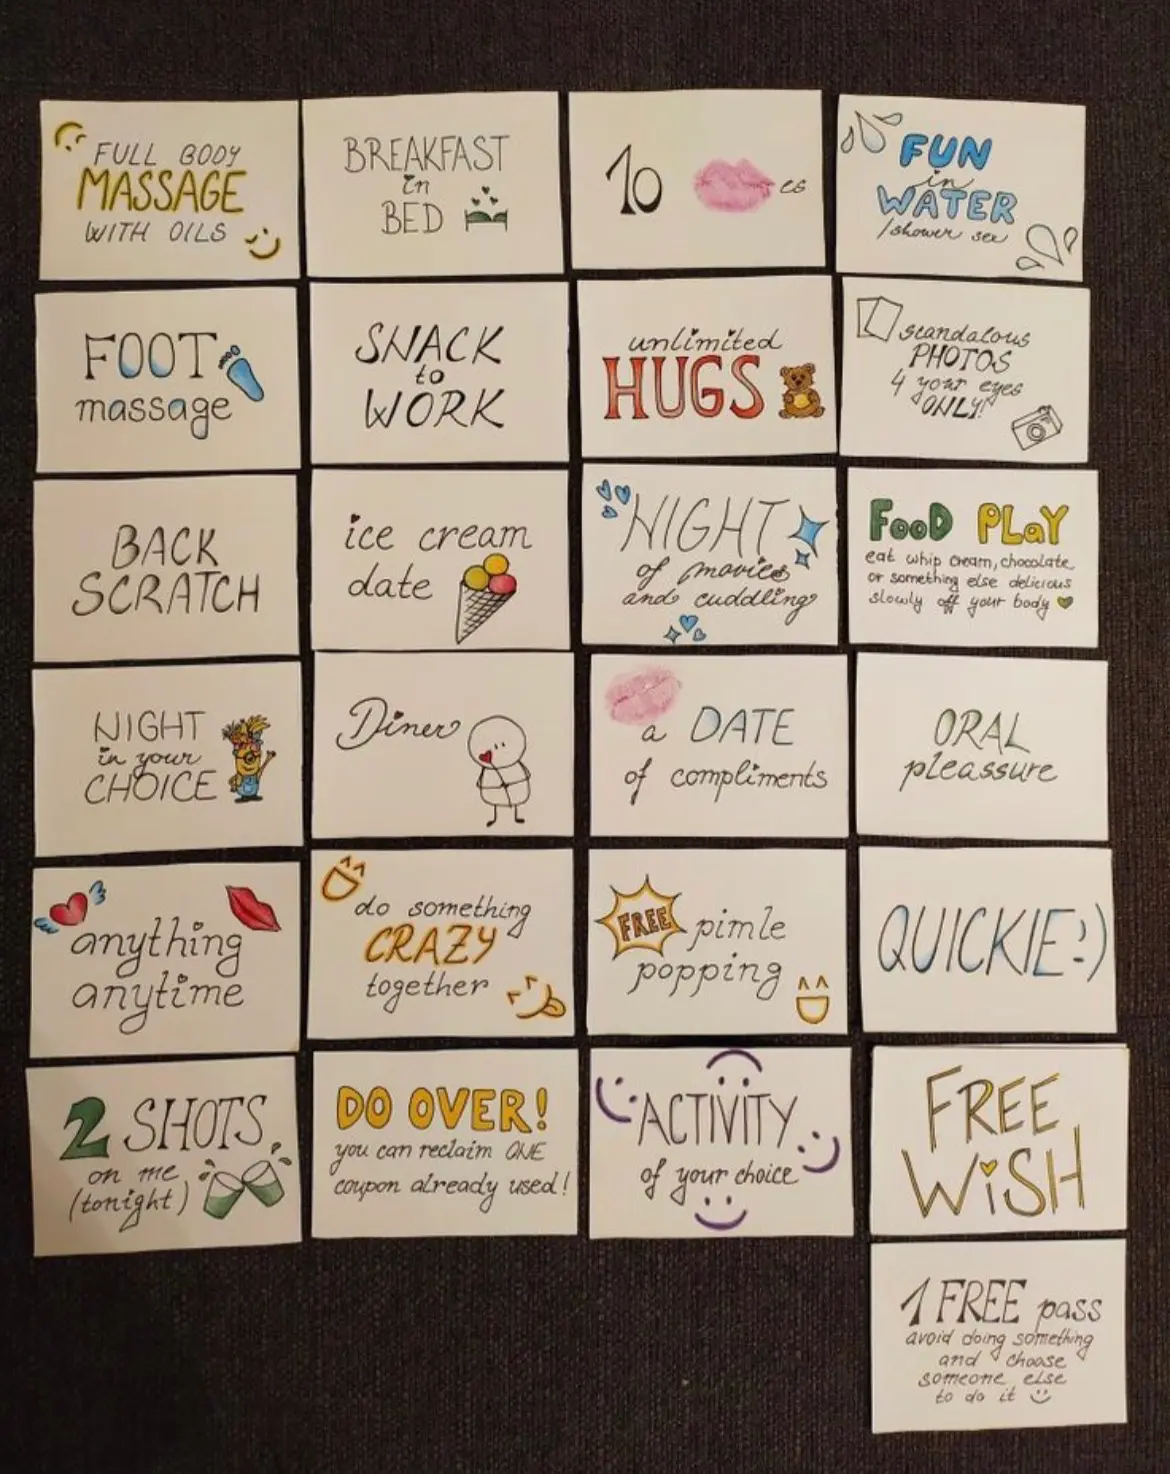 FULL BODY
MASSAGE
WITH OILS
BREAKFAST
in
BED
10 es
FUN
in
WATER
/shower sex
FOOT
massage
SNACK
to
WORK
unlimited
HUGS
scandalous
PHOTOS
4 your eyes
ONLY!
BACK
SCRATCH
ice cream
date
NIGHT
of movies
and cuddling
FOOD PLAY
eat whip cream, chocolate
or something else delicious
slowly off your body
NIGHT
in your
CHOICE
Diner
a DATE
of compliments
ORAL
pleassure
anything
anytime
do something
CRAZY
together
FREE pimle
popping
QUICKIE:)
2 SHOTS
on me
(tonight)
DO OVER!
you can reclaim ONE
coupon already used!
ACTIVITY
of your choice
FREE
WiSH
1 FREE pass
avoid doing something
and choose
someone else
to do it